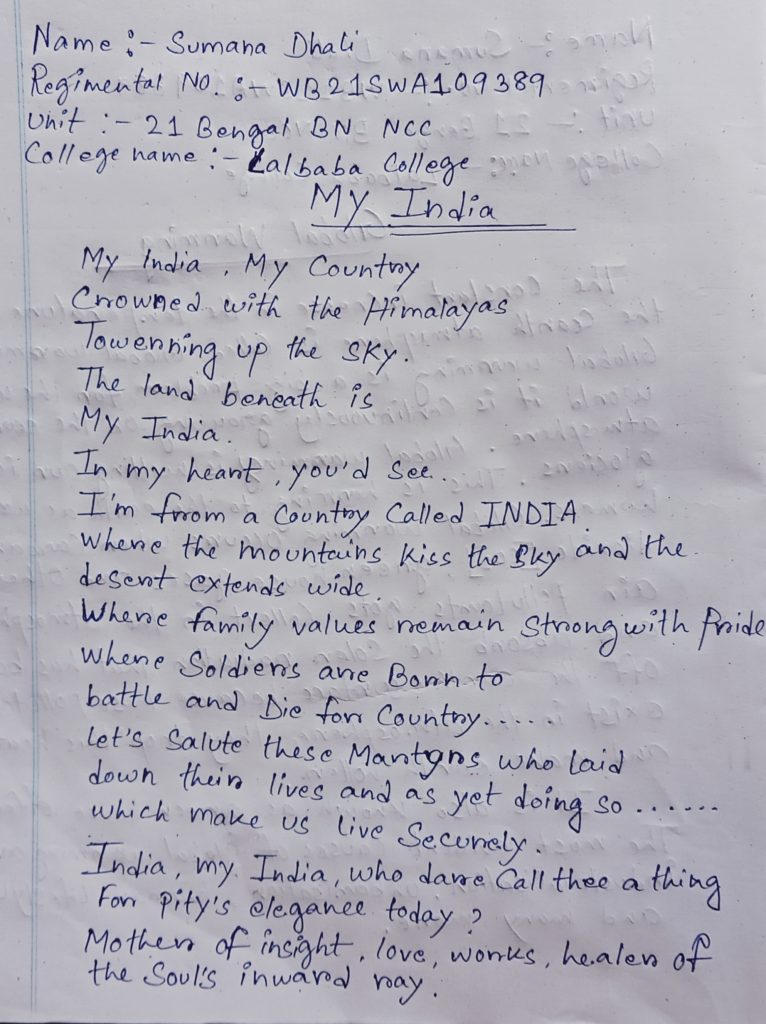 Name :- Sumana Dhali
Regimental No. :- WB21SWA109389
Unit :- 21 Bengal BN NCC
College name :- Lalbaba College
My India
My India, My Country
Crowned with the Himalayas
Towerring up the Sky.
The land beneath is
My India.
In my heart, you'd see.
I'm from a Country Called INDIA.
Where the mountains kiss the Sky and the
desert extends wide.
Where family values remain Strong with Pride
Where Soldiers are Born to
battle and Die for Country......
Let's Salute these Martyrs who laid
down their lives and as yet doing so ......
which make us live Securely.
India, my India, who dare Call thee a thing
For pity's elegance today?
Mother of insight, love, works, healer of
the Soul's inward ray.